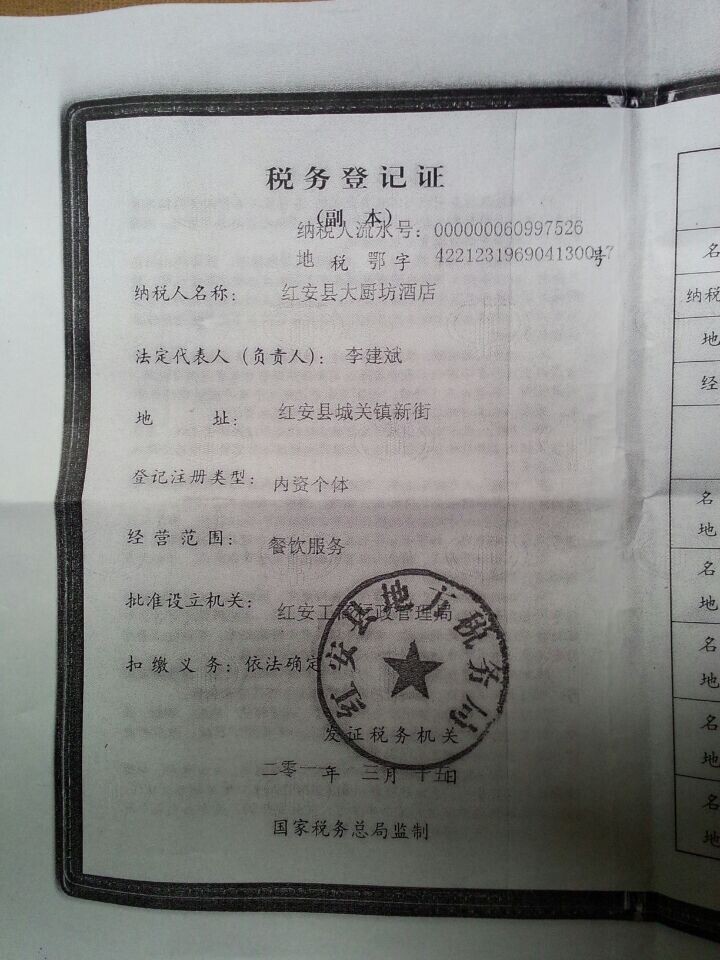 税务登记证
(副 本)
纳税人流水号: 000000060997526
地 税 鄂字 422123196904130047号
纳税人名称: 红安县大厨坊酒店
法定代表人(负责人): 李建斌
地 址: 红安县城关镇新街
登记注册类型: 内资个体
经 营 范 围: 餐饮服务
批准设立机关: 红安工商行政管理局
扣 缴 义 务: 依法确定
红安县地方税务局
发证税务机关
二零一一年 三月 十五日
国家税务总局监制
名
纳税
地
经
名
地
名
地
名
地
名
地
名
地